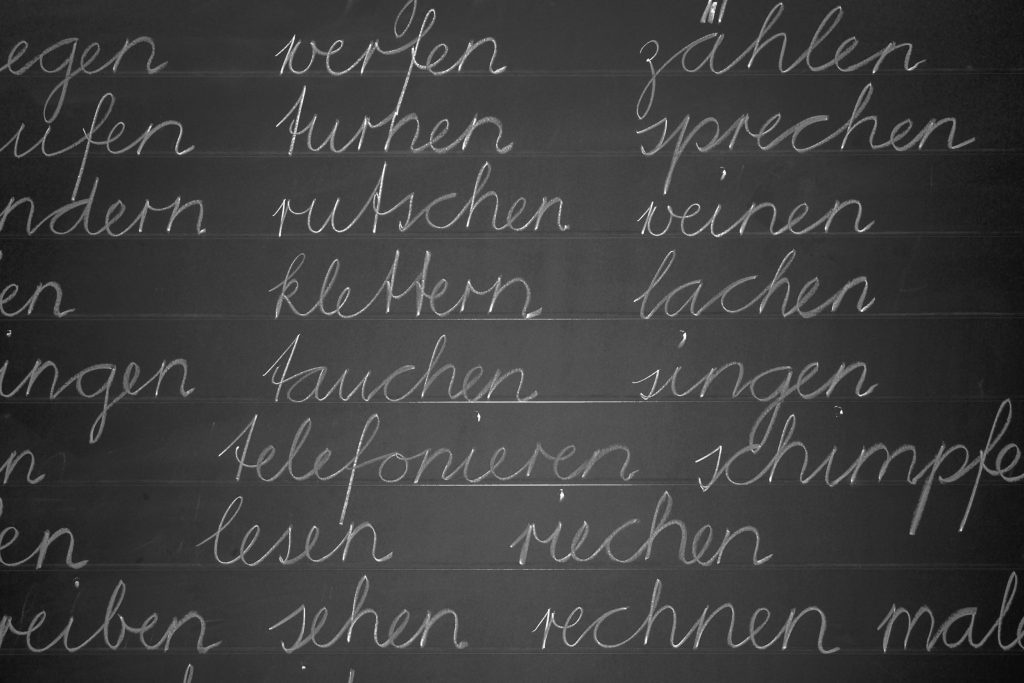 egen werfen zählen
ufen turnen sprechen
ndern rutschen weinen
en klettern lachen
ingen tauchen singen
n telefonieren schimpfe
en lesen riechen
reiben sehen rechnen male